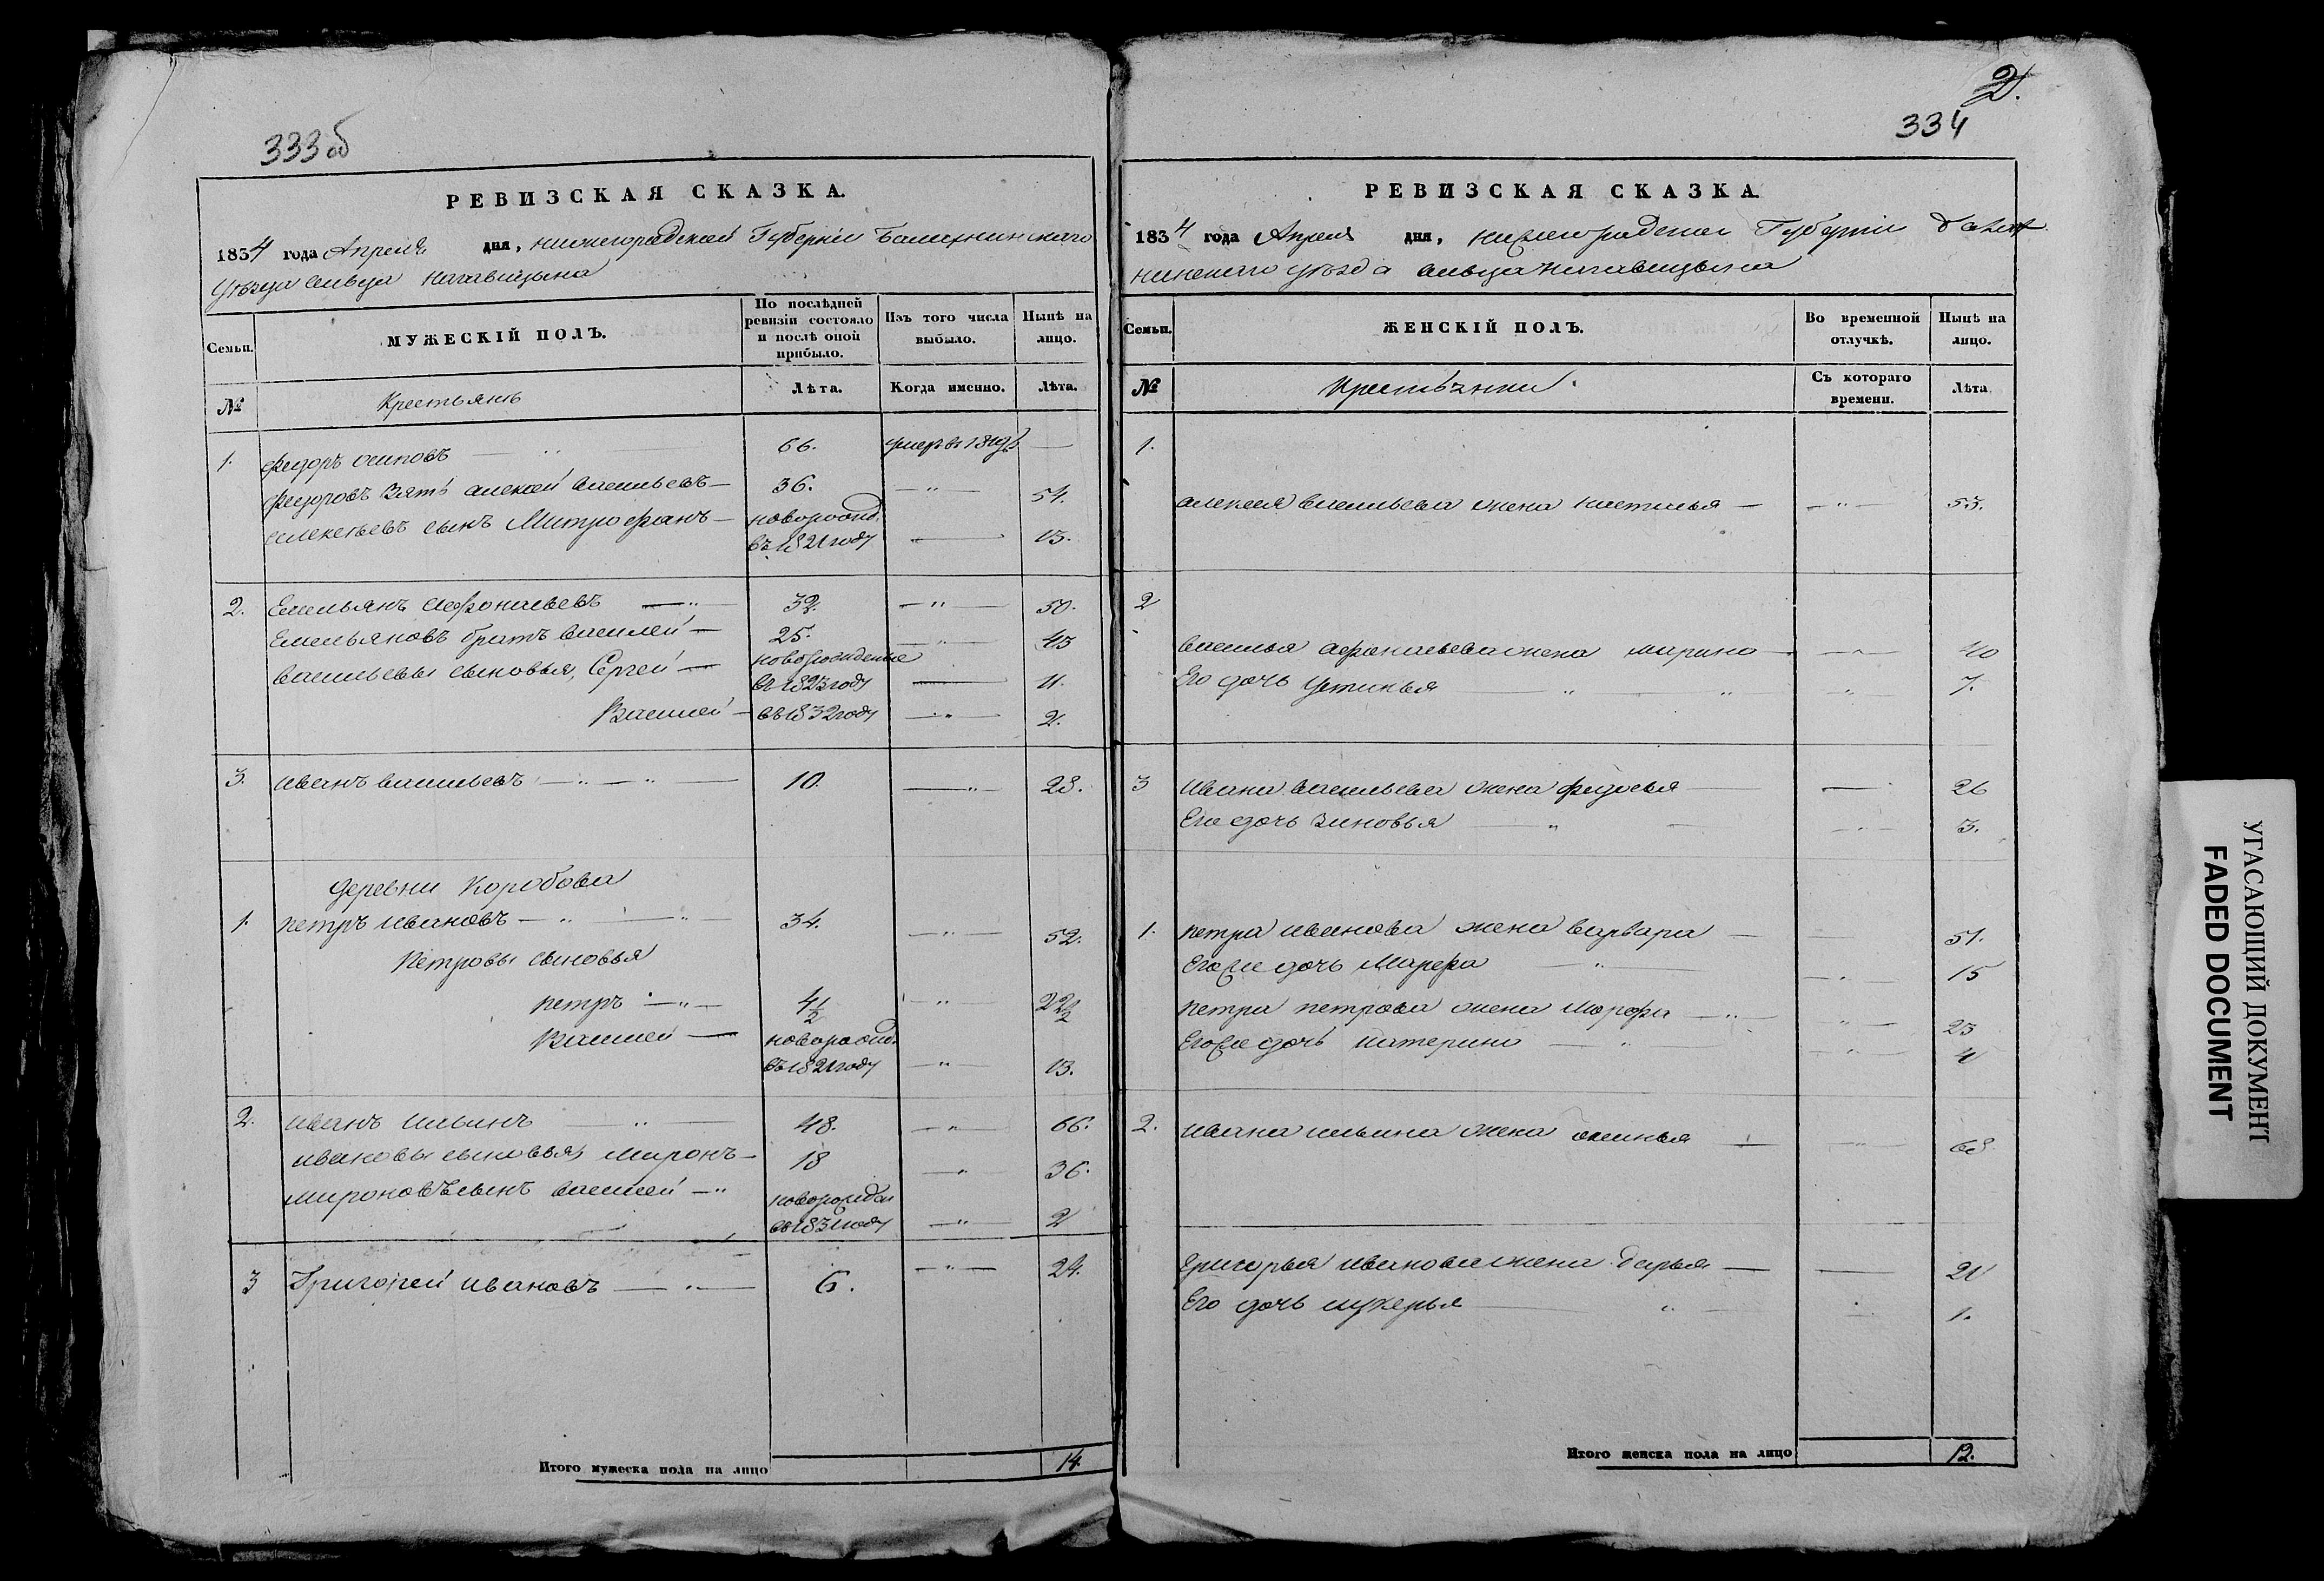 333об
РЕВИЗСКАЯ СКАЗКА.
1834 года Апреля дня, Нижегородской Губернїи Балахнинскаго
уѣзда сельца
Семьи.
МУЖЕСКІЙ ПОЛЪ.
По послѣдней ревизіи состояло и послѣ оной прибыло.
Изъ того числа выбыло.
Нынѣ на лицо.
№
Крестьянъ
Лѣта.
Когда именно.
Лѣта.
1. Федоръ Осиповъ 66. умеръ въ
Федоровъ Зять алексей васильевъ 36. 54.
алексѣевъ сынъ Митрофанъ новорожд.
въ 1821 году 13.
2. Емельянъ Афонасьевъ 32. 50.
Емельяновъ братъ василей 25. 43
васильевы сыновья, Сергей новорожденые
въ 1823 году 11.
Василей въ 1832 году 2.
3. иванъ васильевъ 10. 28.
деревни Коробова
1. петръ ивановъ 34. 52.
Петровы сыновья
петръ 4½ 22½
Василей новорожд.
въ 1821 году 13.
2. иванъ ильинъ 48. 66.
ивановы сыновья миронъ 18 36.
мироновъ сынъ василей новорожден
въ году 2
3 Григорей ивановъ 6. 24.
Итого мужеска пола на лицо 14.
2.
334
РЕВИЗСКАЯ СКАЗКА.
1834 года Апреля дня, нижегородской Губернїи балах
нинскаго уѣзда сельца
Семьи.
ЖЕНСКІЙ ПОЛЪ.
Во временной отлучкѣ.
Нынѣ на лицо.
№
Крестьянки
Съ котораго времени.
Лѣта
1.
алексея васильева жена настасья 53.
2
василья афонасьева жена марина 40
Его дочь устинья 7.
3 ивана васильева жена федосья 26
Его дочь зиновья 3.
1. петра иванова жена варвара 51.
Его же дочь Марфа 15
петра петрова жена марфа 23
Его же дочь катерина 4
2. ивана ильина жена аксинья 68
григорья иванова жена дарья 21
Его дочь лукерья 1.
Итого женска пола на лицо 12.
УГАСАЮЩИЙ ДОКУМЕНТ
FADED DOCUMENT